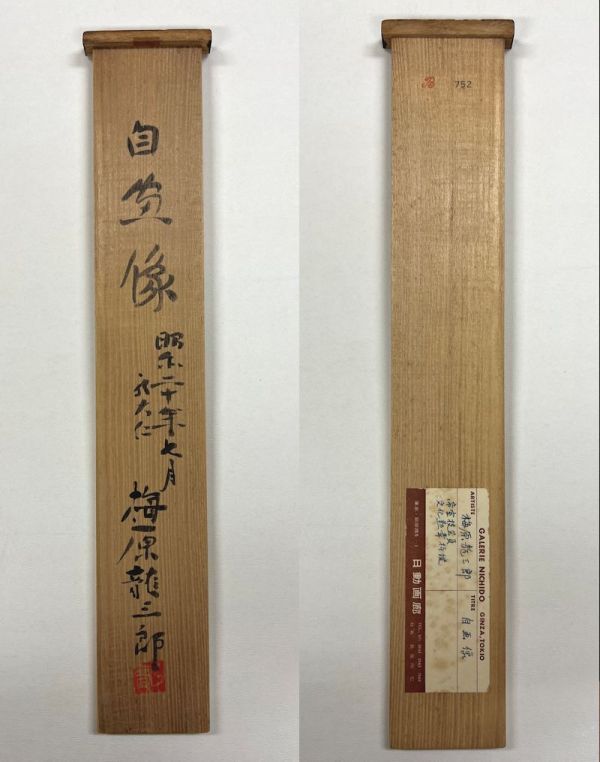 自画像
昭和二十年七月
於大仁
梅原龍三郎
752
GALERIE NICHIDO GINZA, TOKIO
ARTISTE 梅原龍三郎 TITRE 自画像
帝室技芸員
文化勲章拝受
日動画廊